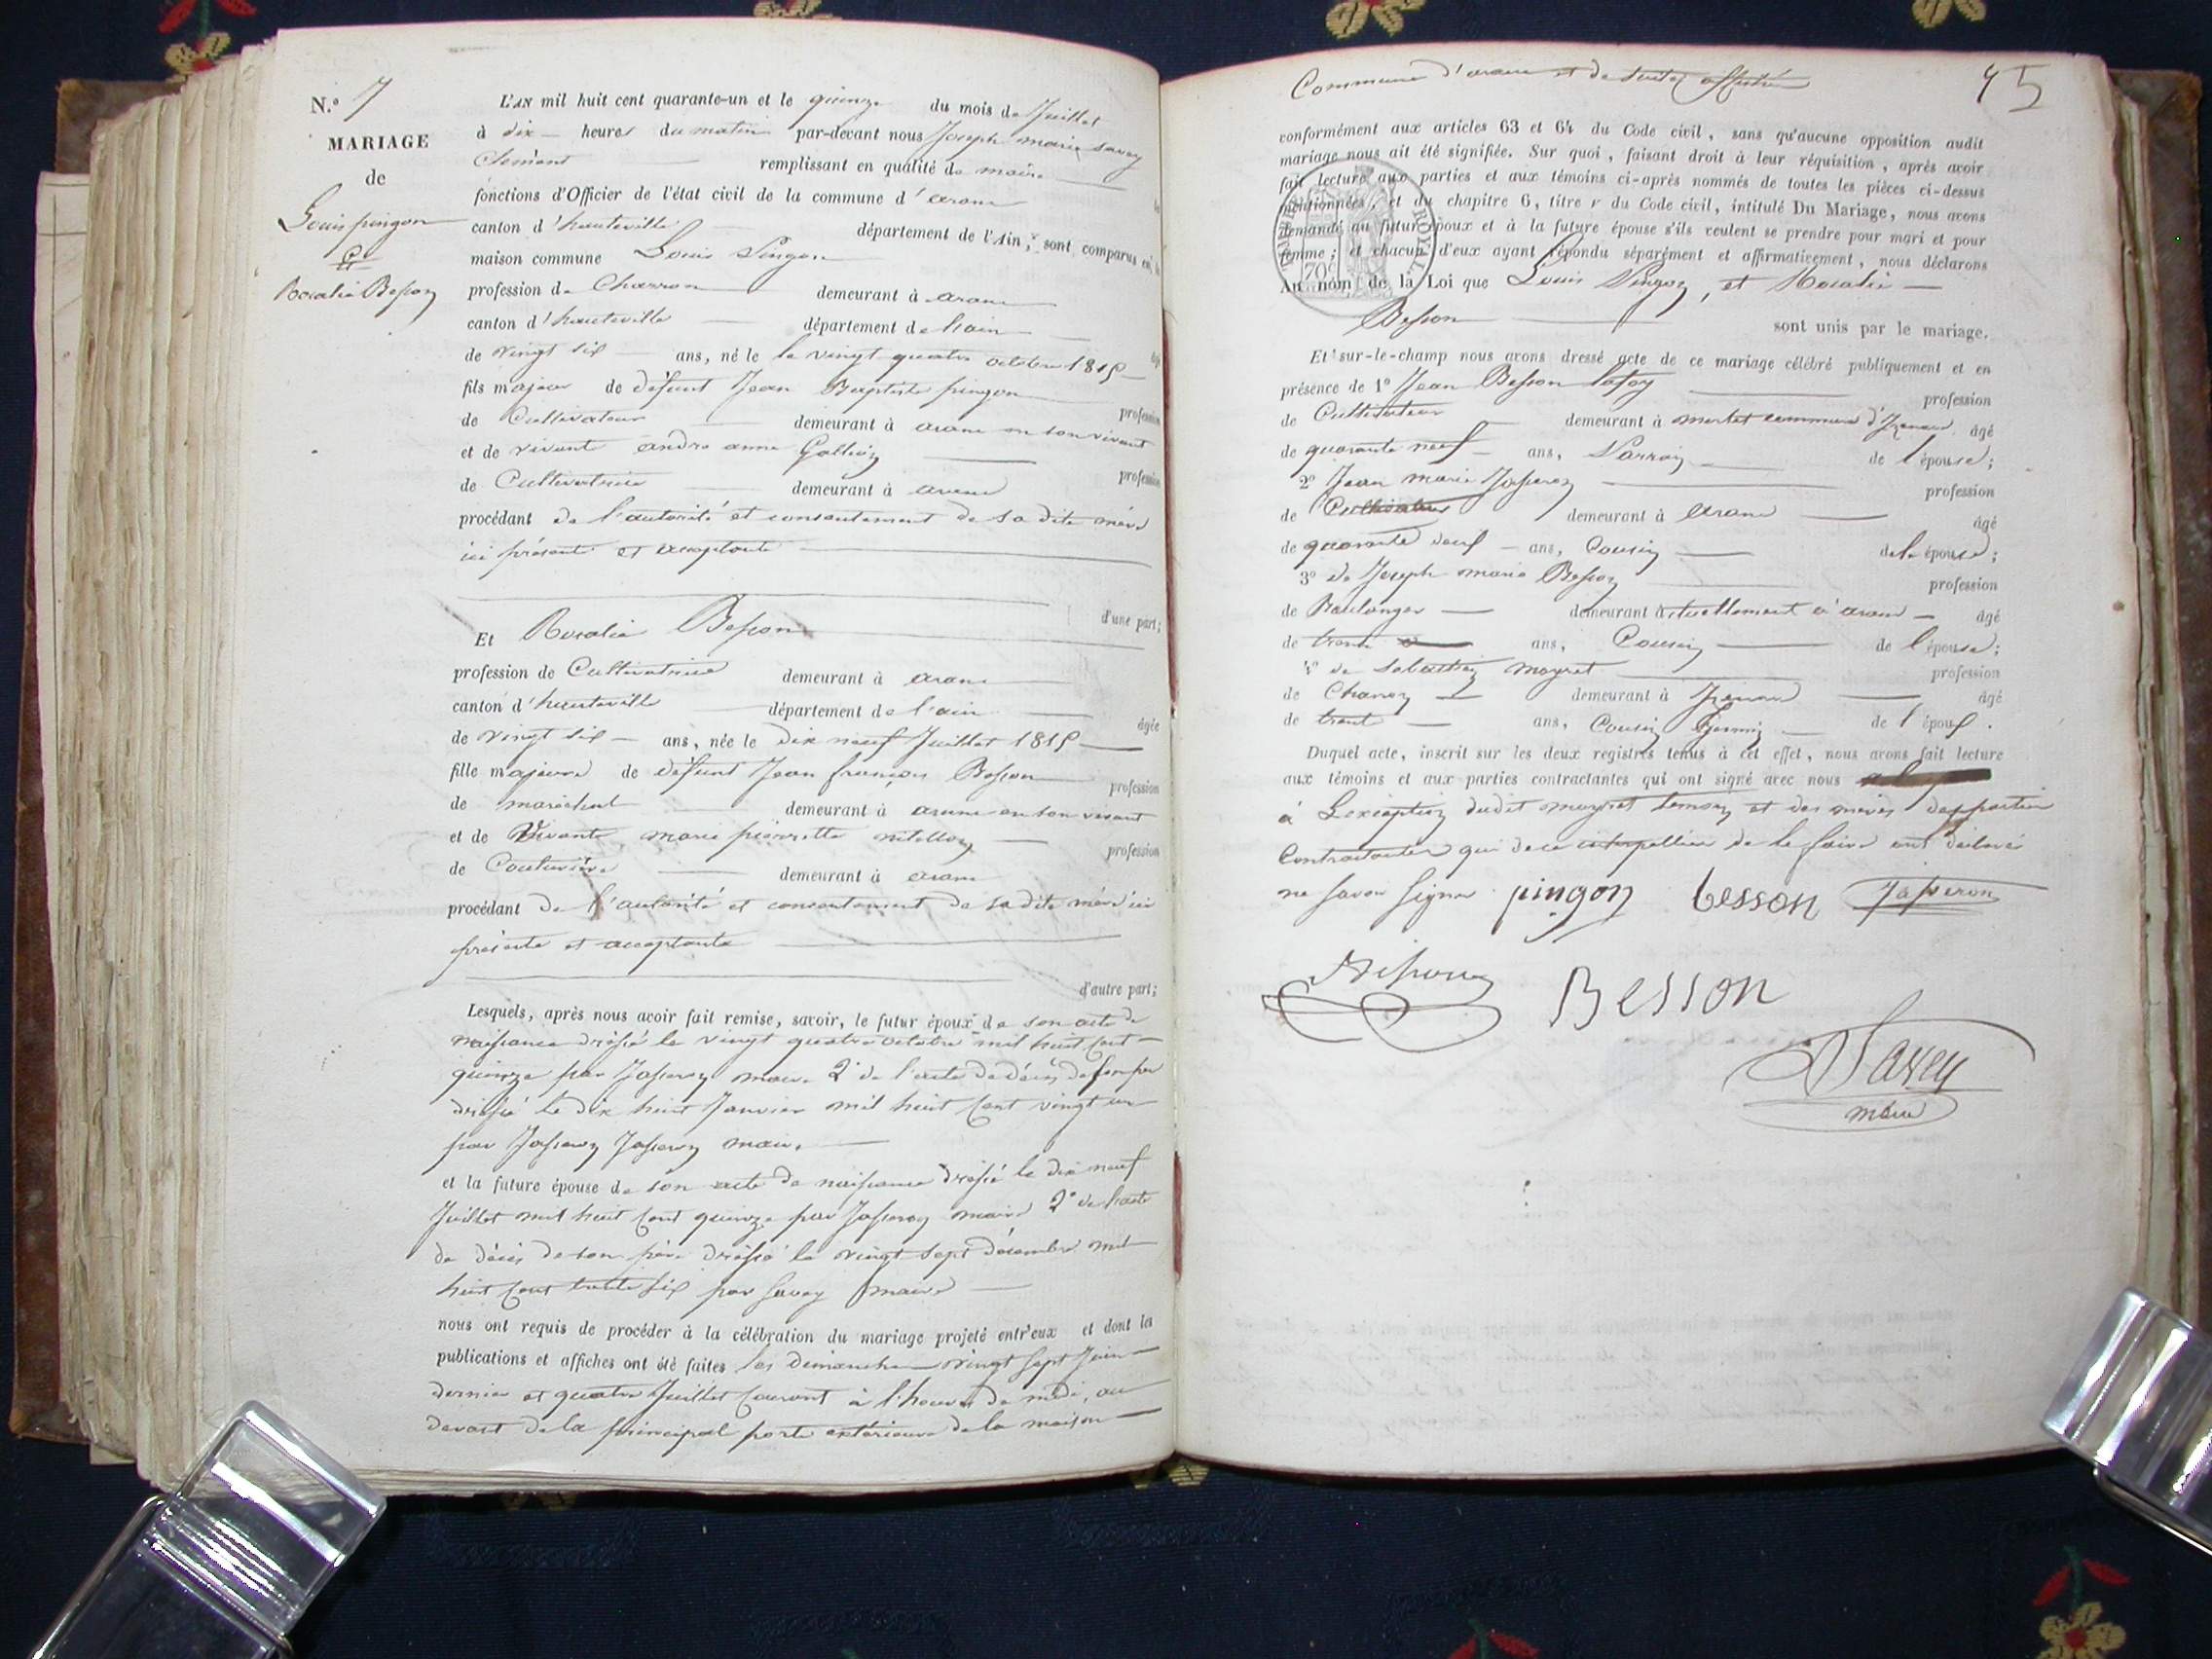 N.º 7
MARIAGE
de
Louis pingon
et
Rosalie Besson
L'AN mil huit cent quarante-un et le quinze du mois de Juillet
à dix heures du matin par-devant nous Joseph marie savey
Clément remplissant en qualité de maire
fonctions d'Officier de l'état civil de la commune d'arane
canton d'hauteville département de l'Ain, sont comparus en la
maison commune Louis Pingon
profession de Charron demeurant à arane
canton d'hauteville département de l'ain
de vingt six ans, né le le vingt quatre octobre 1815
fils majeur de défunt Jean Baptiste pingon
profession
de Cultivateur demeurant à arane en son vivant
et de vivante andré anne
profession
de Cultivatrice demeurant à arane
procédant de l'autorité et consentement de sa dite mère
ici présente et acceptante
d'une part;
Et Rosalie Besson
profession de Cultivatrice demeurant à arane
canton d'hauteville département de l'ain
âgée
de vingt six ans, née le dix neuf Juillet 1815
fille majeure de défunt Jean françois Besson
profession
de maréchal demeurant à arane en son vivant
et de Vivante marie pierrette
profession
de Couturière demeurant à arane
procédant de l'autorité et consentement de sa dite mère ici
présente et acceptante
d'autre part;
Lesquels, après nous avoir fait remise, savoir, le futur époux de son acte de
naissance dressé le vingt quatre octobre mil huit cent
quinze par Jasseron maire 2º de l'acte de décès de son père
dressé le dix huit Janvier mil huit cent vingt un
par Jasseron Jasseron maire
et la future épouse de son acte de naissance dressé le dix neuf
Juillet mil huit cent quinze par Jasseron maire 2º de l'acte
de décès de son père dressé le vingt sept décembre mil
huit cent trente six par Savey maire
nous ont requis de procéder à la célébration du mariage projeté entr'eux et dont les
publications et affiches ont été faites les dimanches vingt sept Juin
dernier et quatre Juillet courant à l'heure de midi, au
devant de la principal porte extérieure de la maison
Commune d'arane et de suite affichées
45
conformément aux articles 63 et 64 du Code civil, sans qu'aucune opposition audit
mariage nous ait été signifiée. Sur quoi, faisant droit à leur réquisition, après avoir
fait lecture aux parties et aux témoins ci-après nommés de toutes les pièces ci-dessus
mentionnées, et du chapitre 6, titre v du Code civil, intitulé Du Mariage, nous avons
demandé au futur époux et à la future épouse s'ils veulent se prendre pour mari et pour
femme; et chacun d'eux ayant répondu séparément et affirmativement, nous déclarons
Au nom de la Loi que Louis Pingon, et Rosalie
TIMBRE ROYAL
70c
Besson sont unis par le mariage.
Et sur-le-champ nous avons dressé acte de ce mariage célébré publiquement et en
présence de 1º Jean Besson
profession
de Cultivateur demeurant à commune d'Izenave âgé
de quarante neuf ans, Parrain de l'épouse;
2º Jean marie Jasseron
profession
de Cultivateur demeurant à arane
âgé
de quarante neuf ans, Cousin de l'épouse;
3º de Joseph marie Besson
profession
de Boulanger demeurant actuellement à arane âgé
de trente ans, Cousin de l'épouse;
4º de Sébastien
profession
de demeurant à Izenave âgé
de trente ans, Cousin Germain de l'époux.
Duquel acte, inscrit sur les deux registres tenus à cet effet, nous avons fait lecture
aux témoins et aux parties contractantes qui ont signé avec nous
à L'exception dudit témoin et des mères des parties
Contractantes qui de ce interpellées de le faire ont déclaré
ne savoir signer pingon besson Jasseron
Besson
Savey
maire